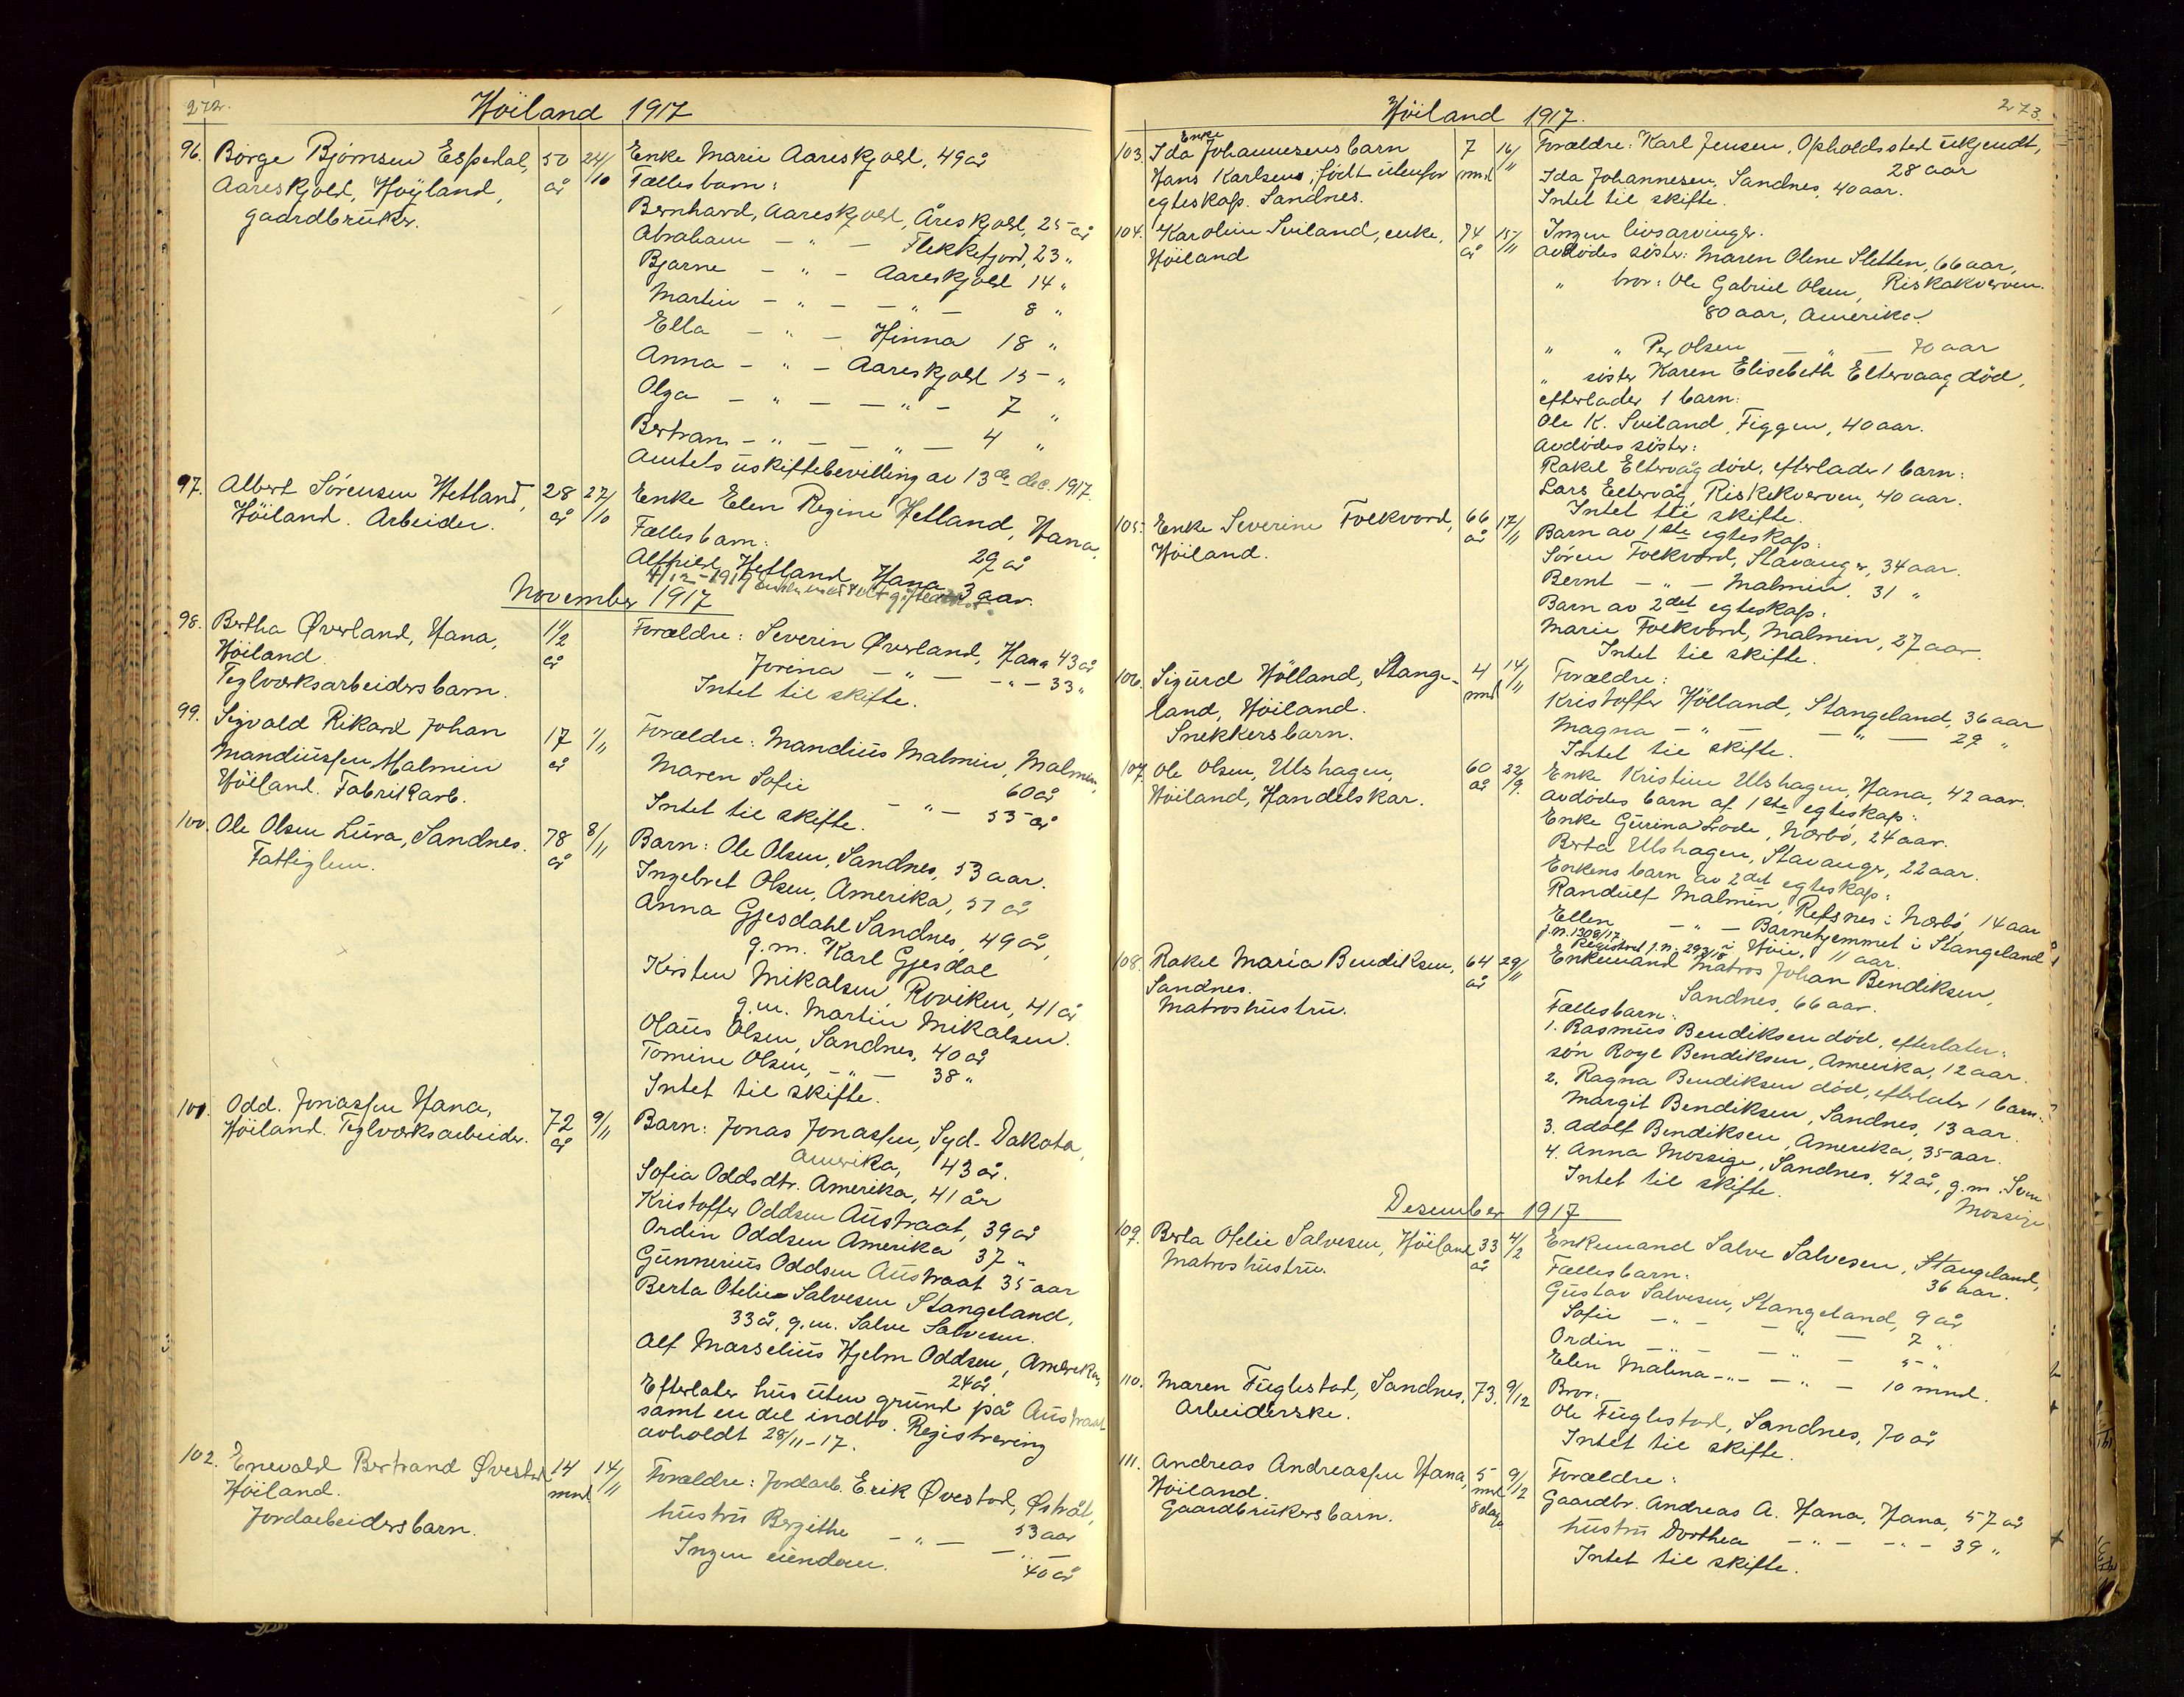 272.
Höiland 1917
96. Børge Bjørnsen Espedal, 50 24/
Aareskjold, Høyland, år 10
gaardbruker.
Enke Marie Aareskjold, 49 år
Fællesbarn:
Bernhard, Aareskjold, Åreskjold, 25 år
Abraham — " — Flekkefjord, 23 "
Bjarne — " — Aareskjold 14 "
Martin — " — — " — 8 "
Ella — " — Hinna 18 "
Anna — " — Aareskjold 15 "
Olga — " — — " — 7 "
Bertram — " — — " — 4 "
Amtets uskiftebevilling av 13de dec. 1917.
97. Albert Sörensen Hetland, 28 27/
Höiland. Arbeider. år 10
Enke Elen Regine Hetland, Hana,
29 år
Fællesbarn:
Alffild Hetland, Hana, 3 aar.
4/12-1919
November 1917
98. Bertha Øverland, Hana, 1 1/2
Höiland år
Teglværksarbeidersbarn.
Forældre: Severin Øverland, Hana 43 år
Jorina — " — — " — 33 "
Intet til skifte.
99. Sigvald Rikard Johan 17 1/
Mandiussen Malmin år 11
Höiland. Fabrikarb.
Forældre: Mandius Malmin, Malmin,
60 år
Maren Sofie — " — 55 år
Intet til skifte.
100. Ole Olsen Lura, Sandnes. 78 8/
Fattiglem. år 11
Barn: Ole Olsen, Sandnes, 53 aar.
Ingebret Olsen, Amerika, 51 år
Anna Gjesdahl Sandnes, 49 år,
g.m. Karl Gjesdal
Kirsten Mikalsen, Roviken, 41 år
g.m. Martin Mikalsen.
Olaus Olsen, Sandnes, 40 år
Tomine Olsen, — " — 38 "
Intet til skifte.
101. Odd. Jonassen Hana, 72 9/
Höiland. Teglværksarbeider. år 11
Barn: Jonas Jonassen, Syd-Dakota,
Amerika, 43 år.
Sofia Oddsdtr. Amerika, 41 år
Kristoffer Oddsen Austraat, 39 år
Ordin Oddsen Amerika 37 "
Gunnerius Oddsen Austraat 35 aar
Berta Otelie Salvesen Stangeland,
33 år, g.m. Salve Salvesen.
Alf Marselius Hjelm Oddsen, Amerika,
24 år
Efterlater hus uten grund på Austraat
samt en del indbo. Registrering
avholdt 28/11-17.
102. Enevald Bertrand Øvestad 14 14/
Höiland. mnd 11
Jordarbeidersbarn.
Forældre: Jordarb. Erik Øvestad, Østråt,
53 aar
hustru Bergithe — " — — " —
40 år
Ingen eiendom.
273.
Höiland 1917.
Enke
103. Ida Johannesens barn 7 16/
Hans Karlsen, født utenfor mnd 11
egteskap. Sandnes.
Forældre: Karl Jensen, Opholdssted ukjendt,
28 aar
Ida Johannesen, Sandnes, 40 aar.
Intet til skifte.
104. Karoline Sviland, enke, 74 15/
Höiland år 11
Ingen livsarvinger.
Avdödes söster: Maren Olene Sletten, 66 aar,
" bror: Ole Gabriel Olsen, Riskakverven.
80 aar, Amerika.
" " Per Olsen — " — 70 aar
" söster Karen Elisebeth Eltervaag död,
efterlader 1 barn:
Ole K. Sviland, Figgen, 40 aar.
Avdödes söster:
Rakel Eltervåg död, efterlader 1 barn:
Lars Eltervåg, Riskekverven, 40 aar.
Intet til skifte.
105. Enke Severine Folkvord, 66 17/
Höiland. år 11
Barn av 1ste egteskap:
Sören Folkvord, Stavanger, 34 aar.
Bernt — " — Malmin, 31 "
Barn av 2det egteskap:
Marie Folkvord, Malmin, 27 aar.
Intet til skifte.
106. Sigurd Hölland, Stange- 4 14/
land, Höiland. mnd 11
Snekkersbarn.
Forældre:
Kristoffer Hölland, Stangeland, 36 aar
Magna — " — — " — 29 "
Intet til skifte.
107. Ole Olsen, Ulshagen, 60 22/
Höiland, Handelskar. år 9.
Enke Kristine Ulshagen, Hana, 42 aar.
Avdödes barn af 1ste egteskap:
Enke Gurina Lode, Nærbö, 24 aar.
Berta Ulshagen, Stavanger, 22 aar.
Enkens barn av 2det egteskap:
Randulf Malmin, Refsnes i Nærbö, 14 aar
Ellen — " — Barnehjemmet i Stangeland
j.n. 1308/17 i Höie, 11 aar.
Registrert j.n. 293/18
108. Rakel Maria Bendiksen, 64 29/
Sandnes. år 11
Matroshustru.
Enkemand Matros Johan Bendiksen,
Sandnes, 66 aar.
Fællesbarn:
1. Rasmus Bendiksen död, efterlater:
sön Roge Bendiksen, Amerika, 12 aar.
2. Ragna Bendiksen död, efterlater 1 barn:
Margit Bendiksen, Sandnes, 13 aar.
3. Adolf Bendiksen, Amerika, 35 aar.
4. Anna Mossige, Sandnes, 42 år, g.m. Sven
Mossige
Intet til skifte.
Desember 1917
109. Berta Otelie Salvesen, Höiland 33 4/
Matroshustru. år 12
Enkemand Salve Salvesen, Stangeland,
36 aar.
Fællesbarn:
Gustav Salvesen, Stangeland, 9 år
Sofie — " — — " — 7 "
Ordin — " — — " — 5 "
Elen Malina — " — — " — 10 mnd.
110. Maren Fuglestad, Sandnes, 73. 9/12
Arbeiderske.
Bror:
Ole Fuglestad, Sandnes, 70 år
Intet til skifte.
111. Andreas Andreassen Hana, 5 9/
Höiland. mnd 12
Gaardbrukersbarn. 8 dage
Forældre:
Gaardbr. Andreas A. Hana, Hana, 57 år
hustru Dorthea — " — — " — 39 "
Intet til skifte.